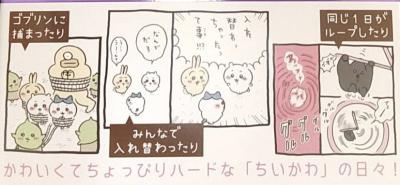 ゴブリンに
捕まったり
なんか
だる
入れ
替わっ
ちゃった
って事!!?
みんなで
入れ替わったり
同じ1日が
ループしたり
グルグル
グルグル
かわいくてちょっぴりハードな「ちいかわ」の日々!